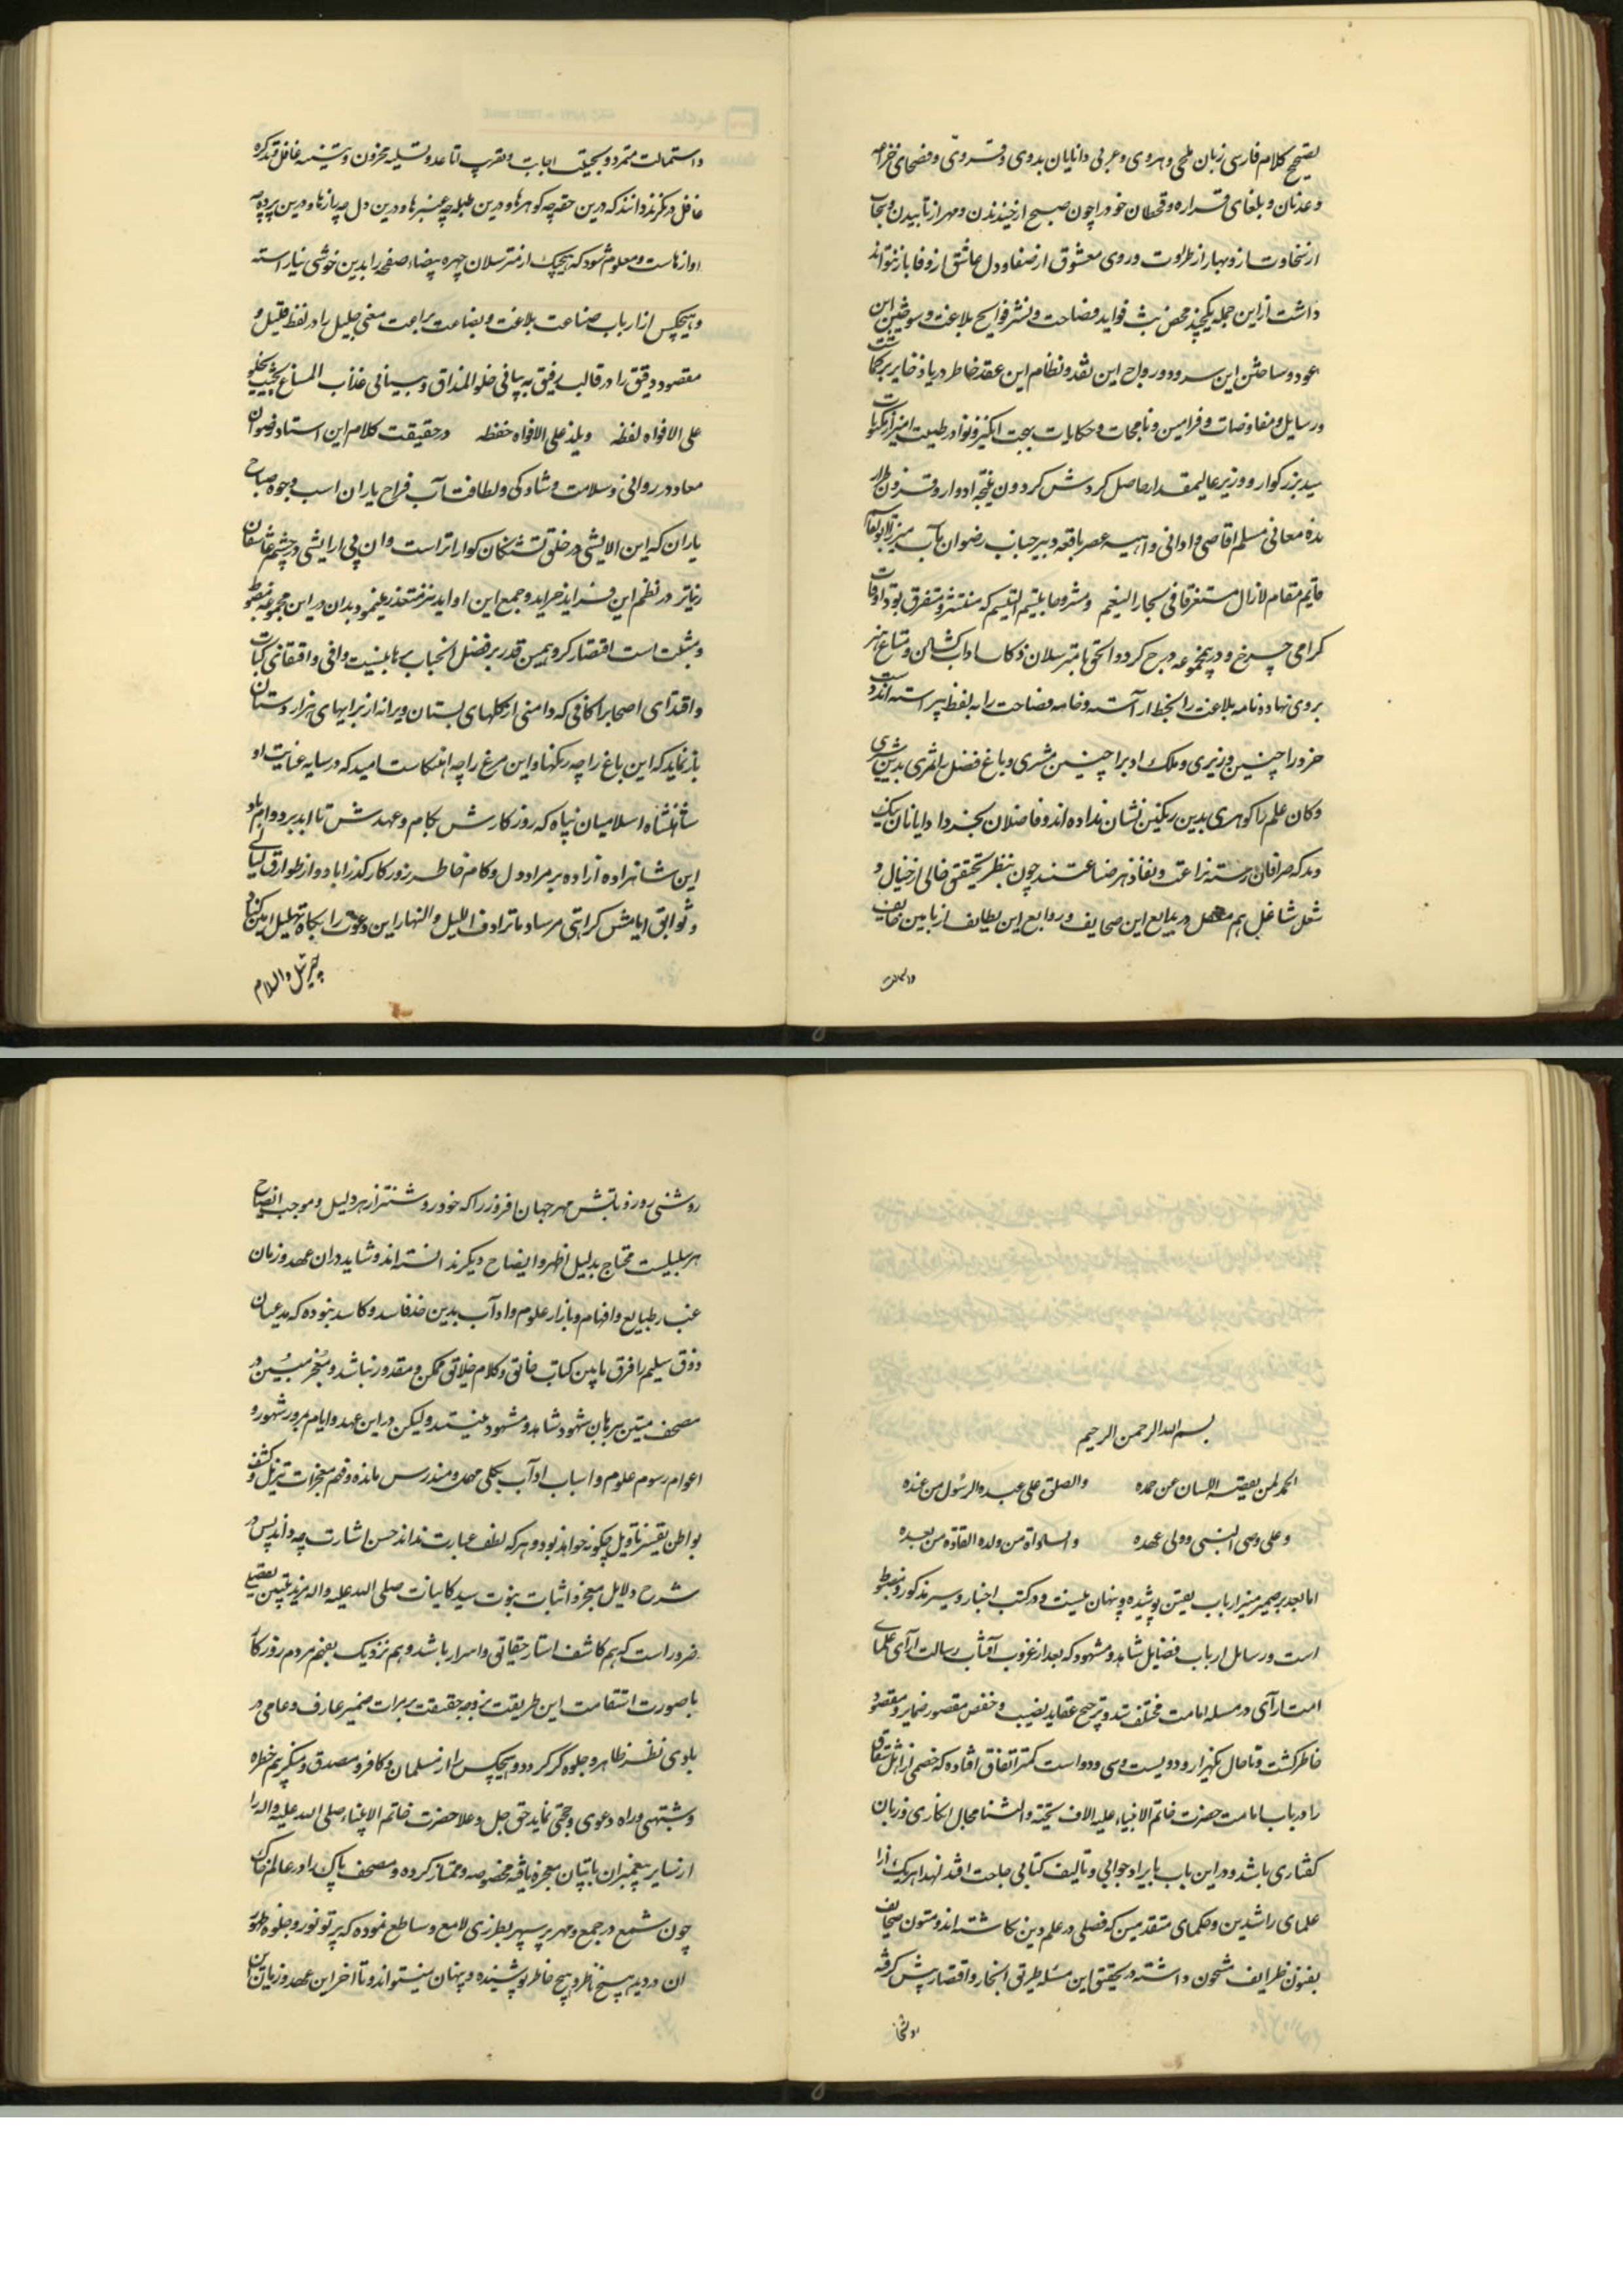 بتصحیح کلام فارسی زبان بلخی و هروی و عربی دانایان بدوی و قروی و فصحای
و عدنان و بلغای قراره و قحطان خود را چون صبح از خندیدن و مهر از تابیدن و سحاب
از سخاوت ساز و بهار از طراوت و روی معشوق از صفا و دل عاشق از وفا باز نتواند
داشت از این جمله یکچند محض بث فواید فصاحت و نشر فوایح بلاغت و سوختن این
عود و ساختن این سرود و رواج این نقد و نظام این عقد خاطر دریا ذخایر بر
و رسایل و مفاوضات و فرامین و نامجات و حکایات بهجت انگیز و نوادر طیبت آمیز از
سید بزرکوار و وزیر عالیمقدار حاصل کردش کردون نتیجه ادوار و قرون
معانی مسلم اقاصی و ادانی عصر باقعه دبیر جناب رضوان مآب میرزا ابوالقاسم
قایم مقام لازال مستغرقا فی بحار النعیم که منتشر و متفرق بود اوقات
کرامی خرج و درینمجموعه درج کرد و الحق تا مترسلان
بروی نهاده نامه بلاغت را بخط آراسته و خامه فصاحت را بلفظ پیراسته اند
خرد را چنین وزیری و ملک ادب را چنین مشیری و باغ فضل را ثمری بدین
و کان علم را کوهری بدین رنکین نشان نداده اند و فاضلان بخرد و دانایان نیک
و بد که صرافان رسته براعت و نقاد هر بضاعتند چون بنظر تحقیق خالی از خیال و
شغل شاغل در بدایع این صحایف و روایع این لطایف از مابین
و استمالت
و استمالت متمرد و اجابت و تقرب تباعد و تسلیه محزون و تنبیه غافل و تذکره
غافل در نکرند دانند که درین حقه چه کوهرها و درین طبله چه عنبرها و درین دل چه رازها و درین پرده چه
آوازهاست و معلوم شود که هیچیک از مترسلان چهره بیضاء صفحه را بدین خوشی نیاراسته
و هیچکس از ارباب صناعت بلاغت و بضاعت براعت معنی جلیل را در لفظ قلیل و
مقصود دقیق را در قالب رقیق به بیانی حلو المذاق و عذب المساغ
علی الافواه لفظه و یلذ علی الافواه حفظه در حقیقت کلام این استاد رضوان
معاد در روانی و سلامت و لطافت آب
یاران که این آلایشی در حلق تشنکان کواراتر است و آن بی آرایشی در چشم عاشقان
زیباتر در نظم این فراید خراید و جمع این اوابد نیز متعذر مینمود بدان در این مجموعه مضبوط
و مثبت است اقتصار کرد همین قدر بر فضل آنجناب وافی و
و اقتدای اصحاب را کافی که دامنی از کلهای بستان و ترانه از نوای هزار دستان
باز نماید که این باغ را چه رنکها و این مرغ را چه آهنکهاست امید که در سایه عنایت
شاهنشاه اسلامیان پناه که روزکارش بکام و عهدش تا ابد بر دوام باد
این شاهزاده آزاده بر مراد دل و کام خاطر روزکار کذراناد و از طوارق لیالی
و ایامش کزندی مرساد ما ترادف اللیل و النهار این دعوت را بکاه تهلیل آمین کناد
جبرئیل والسلام
بسم الله الرحمن الرحیم
الحمد لمن یقصر اللسان عن حمده والصلوة علی عبده الرسول من عنده
و علی وصی النبی و ولی عهده و السادة من ولده القادة من بعده
اما بعد بر ضمیر منیر ارباب یقین پوشیده و پنهان نیست و در کتب اخبار و سیر مذکور و مضبوط
است و رسایل ارباب فضایل شاهد و مشهود که بعد از غروب آفتاب رسالت آرای علمای
امت آرای در مسئله امامت مختلف شد و ترجیح عقاید بنصب و خفض مقصور ضمایر و مقصود
خاطر کشت و تا حال یکهزار و دویست و سی و دو است کمتر اتفاق افتاده که خصمی از اهل شقاق
را در باب امامت حضرت خاتم الانبیاء علیه الاف التحیة و الثنا مجال انکاری و زبان
کفتاری باشد و در این باب بایراد جوابی و تالیف کتابی حاجت افتد لهذا هر یک از
علمای راشدین و حکمای متقدمین که فصلی در علم دین نکاشته اند و متون صحایف
بفنون ظرایف مشحون داشته در تحقیق این مسئله طریق ایجاز و اقتصار پیش کرفته
روشنی روز و تابش مهر جهان افروز را که خود روشنتر از هر دلیل و موجب ایضاح
هر سبیلست محتاج بدلیل اظهر و ایضاح دیگر ندانسته اند و شاید در آن عهد و زمان
غبار طبایع و افهام و بازار علوم و آداب بدین حد فاسد و کاسد نبوده که مدعیان
ذوق سلیم را فرق مابین کتاب خالق و کلام خلایق ممکن و مقدور نباشد و معجز مبین و
مصحف متین برهان شهود شاهد و مشهود نبینند و لیکن در این عهد و ایام بمرور شهور و
اعوام رسوم علوم و اسباب آداب بکلی مهمل و مندرس مانده و فهم معجزات تنزیل و کشف
بواطن تفسیر و تاویل چکونه خواهد بود و هر که لطف عبارت نداند حسن اشارت چه داند پس در
شرح دلایل معجز و اثبات نبوت سید کاینات صلی الله علیه و اله مزید تبیین و تفصیلی
ضرور است که هم کاشف استار حقایق و اسرار باشد و هم نزدیک بفهم مردم روزکار
تا صورت استقامت این طریقت بر وجه حقیقت بر مرات ضمیر عارف و عامی در
بادی نظر ظاهر و جلوه کر کردد و هیچکس را از مسلمان و کافر و مصدق و منکر
و شبهتی و راه دعوی و حجتی نماند حق جل و علا حضرت خاتم الانبیاء صلی الله علیه و اله را
از سایر پیغمبران باتیان معجزه باقیه مخصوص و ممتاز کرده و مصحف پاک را در عالم خاک
چون شمع در جمع و مهر بر سپهر بطرزی لامع و ساطع نموده که پرتو نور و جلوه ظهور
آن در دیده هیچ ناظر و هیچ خاطر پوشیده و پنهان نیستواند و تا آخر این عهد و زمان